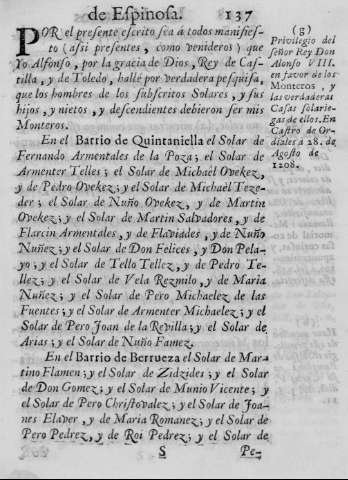 de Espinosa. 137
POR el presente escrito sea à todos manifies-
to (assi presentes, como venideros) que
Yo Alfonso, por la gracia de Dios, Rey de Cas-
tilla, y de Toledo, hallè por verdadera pesquisa,
que los hombres de los subscritos Solares, y sus
hijos, y nietos, y descendientes debieron ser mis
Monteros.
En el Barrio de Quintaniella el Solar de
Fernando Armentales de la Poza; el Solar de
Armenter Telles; el Solar de Michaèl Ovekez,
y de Pedro Ovekez; y el Solar de Michaèl Teze-
der; el Solar de Nuño Ovekez, y de Martin
Ovekez; y el Solar de Martin Salvadores, y de
Flarcin Armentales, y de Flaviades, y de Nuño
Nuñez; y el Solar de Don Felices, y Don Pela-
yo; y el Solar de Tello Tellez, y de Pedro Te-
llez; y el Solar de Vela Rezmilo, y de Maria
Nuñez; y el Solar de Pero Michaelez de las
Fuentes; y el Solar de Armenter Michaelez; y el
Solar de Pero Joan de la Revilla; y el Solar de
Arias; y el Solar de Nuño Famez.
En el Barrio de Berrueza el Solar de Mar-
tino Flamen; y el Solar de Zidzides; y el Solar
de Don Gomez; y el Solar de Munio Vicente; y
el Solar de Pero Christovalez; y el Solar de Joa-
nes Elaver, y de Maria Romanez; y el Solar de
Pero Pedrez, y de Roi Pedrez; y el Solar de
S Pe-
(g)
Privilegio del
señor Rey Don
Alonso VIII.
en favor de los
Monteros, y
las verdaderas
Casas solarie-
gas de ellos. En
Castro de Or-
diales à 28. de
Agosto de
1208.